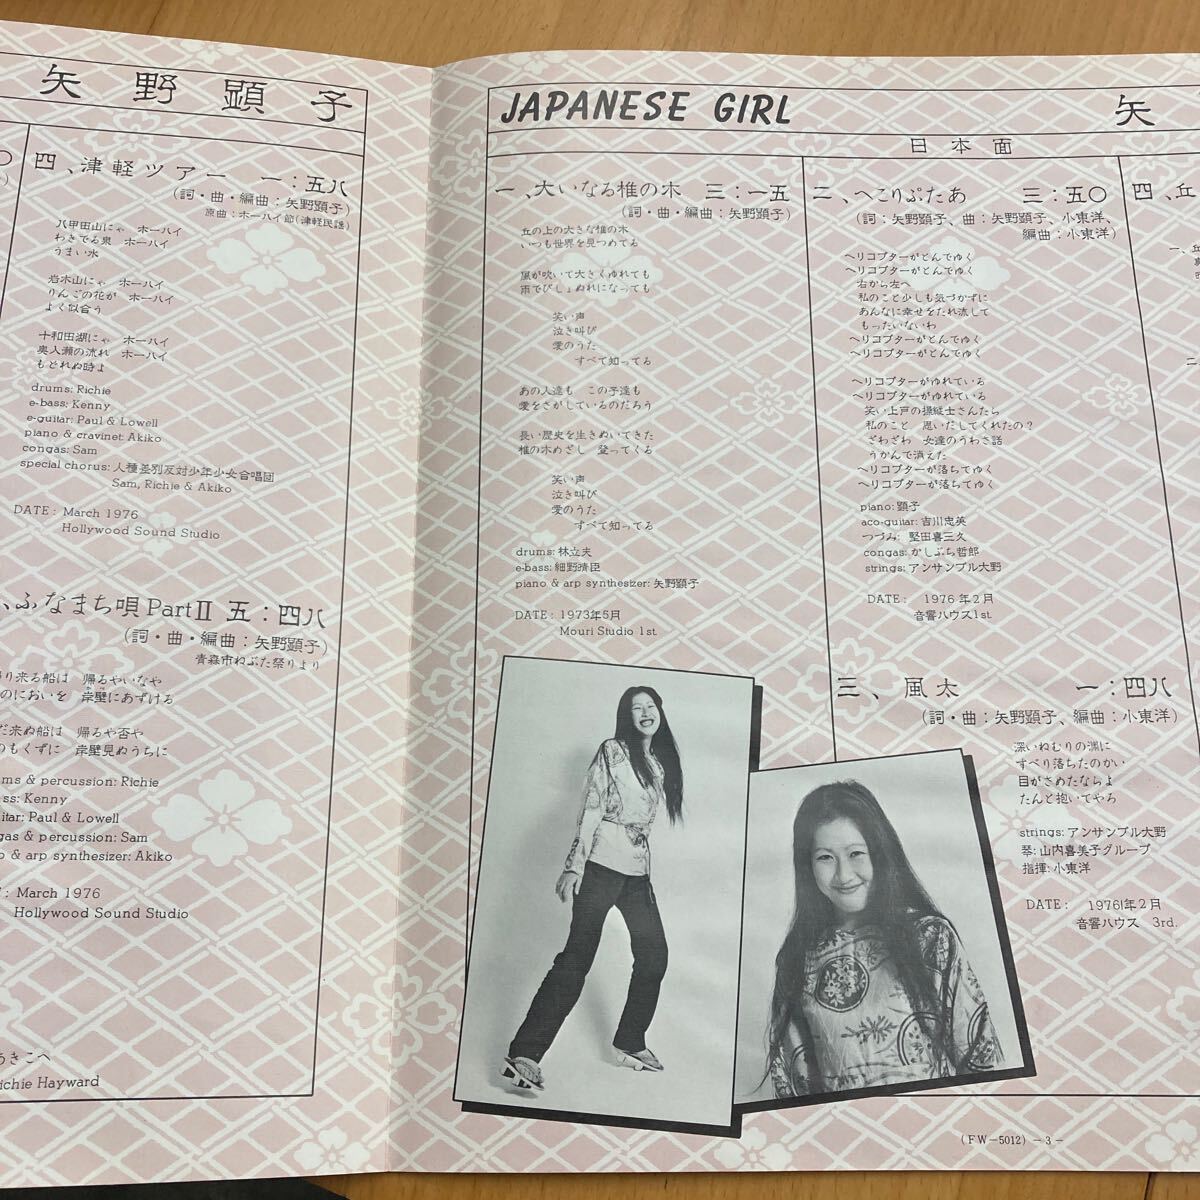 矢野顕子
四、津軽ツアー 一：五八
(詞・曲・編曲：矢野顕子)
原曲：ホーハイ節(津軽民謡)
八甲田山にゃ ホーハイ
わきでる泉 ホーハイ
うまい水
岩木山にゃ ホーハイ
りんごの花が ホーハイ
よく似合う
十和田湖にゃ ホーハイ
奥入瀬の流れ ホーハイ
もどれぬ時よ
drums: Richie
e-bass: Kenny
e-guitar: Paul & Lowell
piano & cravinet: Akiko
congas: Sam
special chorus: 人種差別反対少年少女合唱団
Sam, Richie & Akiko
DATE: March 1976
Hollywood Sound Studio
、ふなまち唄 Part II 五：四八
(詞・曲・編曲：矢野顕子)
青森市ねぶた祭りより
り来る船は 帰るやいなや
のにおいを 岸壁にあずける
だ来ぬ船は 帰るや否や
のもくずに 岸壁見ぬうちに
ms & percussion: Richie
ss: Kenny
itar: Paul & Lowell
gas & percussion: Sam
o & arp synthesizer: Akiko
: March 1976
Hollywood Sound Studio
あきこへ
ichie Hayward
JAPANESE GIRL
矢
日本面
一、大いなる椎の木 三：一五
(詞・曲・編曲：矢野顕子)
丘の上の大きな椎の木
いつも世界を見つめてる
風が吹いて大きくゆれても
雨でびしょぬれになっても
笑い声
泣き叫び
愛のうた
すべて知ってる
あの人達も この子達も
愛をさがしているのだろう
長い歴史を生きぬいてきた
椎の木めざし 登ってくる
笑い声
泣き叫び
愛のうた
すべて知ってる
drums: 林立夫
e-bass: 細野晴臣
piano & arp synthesizer: 矢野顕子
DATE: 1973年5月
Mouri Studio 1st
二、へこりぷたあ 三：五〇
(詞：矢野顕子、曲：矢野顕子、小東洋、
編曲：小東洋)
ヘリコプターがとんでゆく
ヘリコプターがとんでゆく
右から左へ
私のこと少しも気づかずに
あんなに幸せをたれ流して
もったいないわ
ヘリコプターがとんでゆく
ヘリコプターがとんでゆく
ヘリコプターがゆれている
ヘリコプターがゆれている
笑い上戸の操縦士さんたら
私のこと 思いだしてくれたの？
ざわざわ 女達のうわさ話
うかんで消えた
ヘリコプターが落ちてゆく
ヘリコプターが落ちてゆく
piano: 顕子
aco-guitar: 吉川忠英
つづみ: 堅田喜三久
congas: かしぶち哲郎
strings: アンサンブル大野
DATE: 1976年2月
音響ハウス1st.
三、風太 一：四八
(詞・曲：矢野顕子、編曲：小東洋)
深いねむりの淵に
すべり落ちたのかい
目がさめたならよ
たんと抱いてやろ
strings: アンサンブル大野
琴: 山内喜美子グループ
指揮: 小東洋
DATE: 1976年2月
音響ハウス 3rd.
四、丘
(FW-5012) -3-